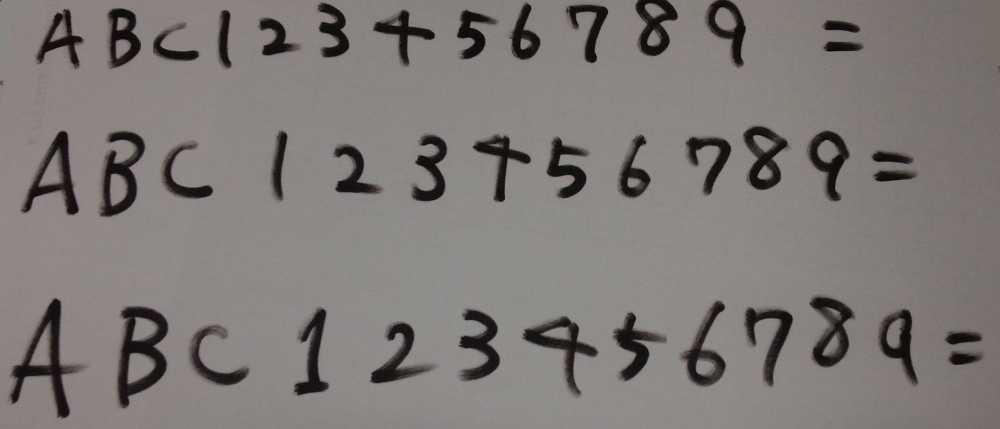 ABC123456789 =
ABC 123456789=
ABC123456789=